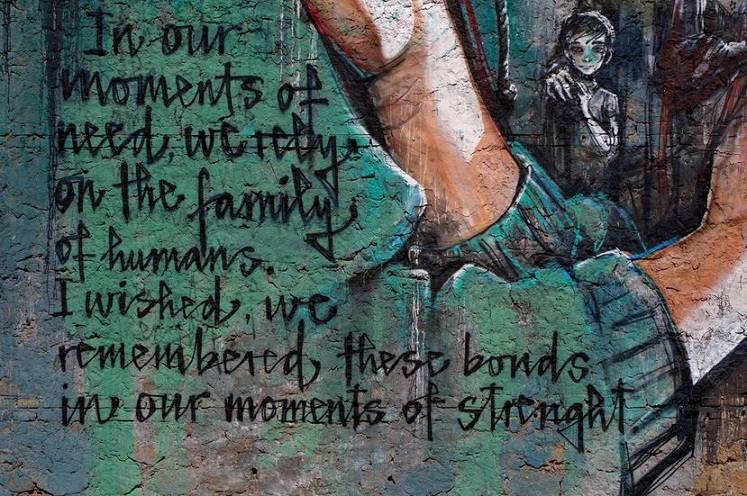 In our
moments of
need, we rely
on the family
of humans.
I wished, we
remembered, these bonds
in our moments of strenght